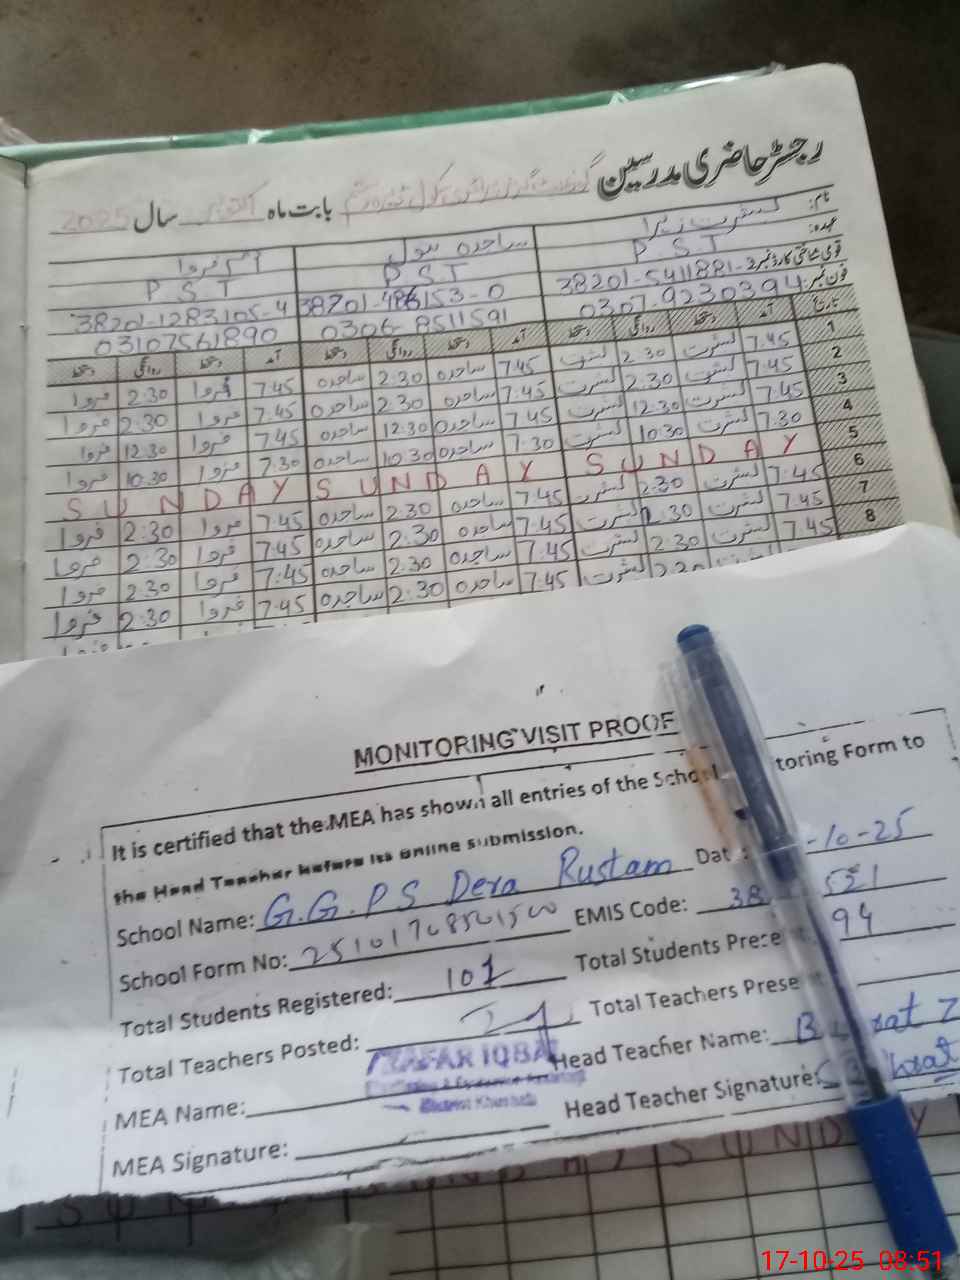 رجسٹر حاضری مدرسین گورنمنٹ گرلز پرائمری سکول ڈیرہ رستم بابت ماہ اکتوبر سال 2025
نام: ساجدہ بتول
عہدہ: P S T P S T P S T
قومی شناختی کارڈ نمبر 38201-5411881-2 38201-486153-0 38201-1283105-4
فون نمبر: 0307-9230394 0306-8511591 03107561890
تاریخ آمد دستخط روانگی دستخط آمد دستخط روانگی دستخط آمد دستخط روانگی دستخط
1 7.45 2.30 7.45 ساجدہ 2:30 ساجدہ 7.45 فروا 2:30 فروا
2 7.45 2.30 7.45 ساجدہ 2.30 ساجدہ 7.45 فروا 2:30 فروا
3 7.45 12.30 7.45 ساجدہ 12.30 ساجدہ 7.45 فروا 12.30 فروا
4 7.30 10.30 7.30 ساجدہ 10.30 ساجدہ 7.30 فروا 10.30 فروا
5 S U N D A Y S U N D A Y S U N D A Y
6 7.45 2.30 7.45 ساجدہ 2.30 ساجدہ 7.45 فروا 2:30 فروا
7 7.45 2.30 7.45 ساجدہ 2.30 ساجدہ 7.45 فروا 2:30 فروا
8 7.45 2.30 7.45 ساجدہ 2.30 ساجدہ 7.45 فروا 2:30 فروا
7.45 ساجدہ 2:30 ساجدہ 7.45 فروا 2:30 فروا
MONITORING VISIT PROOF
It is certified that the MEA has shown all entries of the School toring Form to
the Head Teacher before its online submission.
School Name: G.G.P S Dera Rustam Dat -10-25
School Form No: EMIS Code: 38 521
Total Students Registered: 101 Total Students Present 94
Total Teachers Posted: Total Teachers Prese
ZAFAR IQBAL
MEA Name: Head Teacher Name:
District Khushab
MEA Signature: Head Teacher Signature:
S U N D A Y S U N D Y
17-10-25 08:51